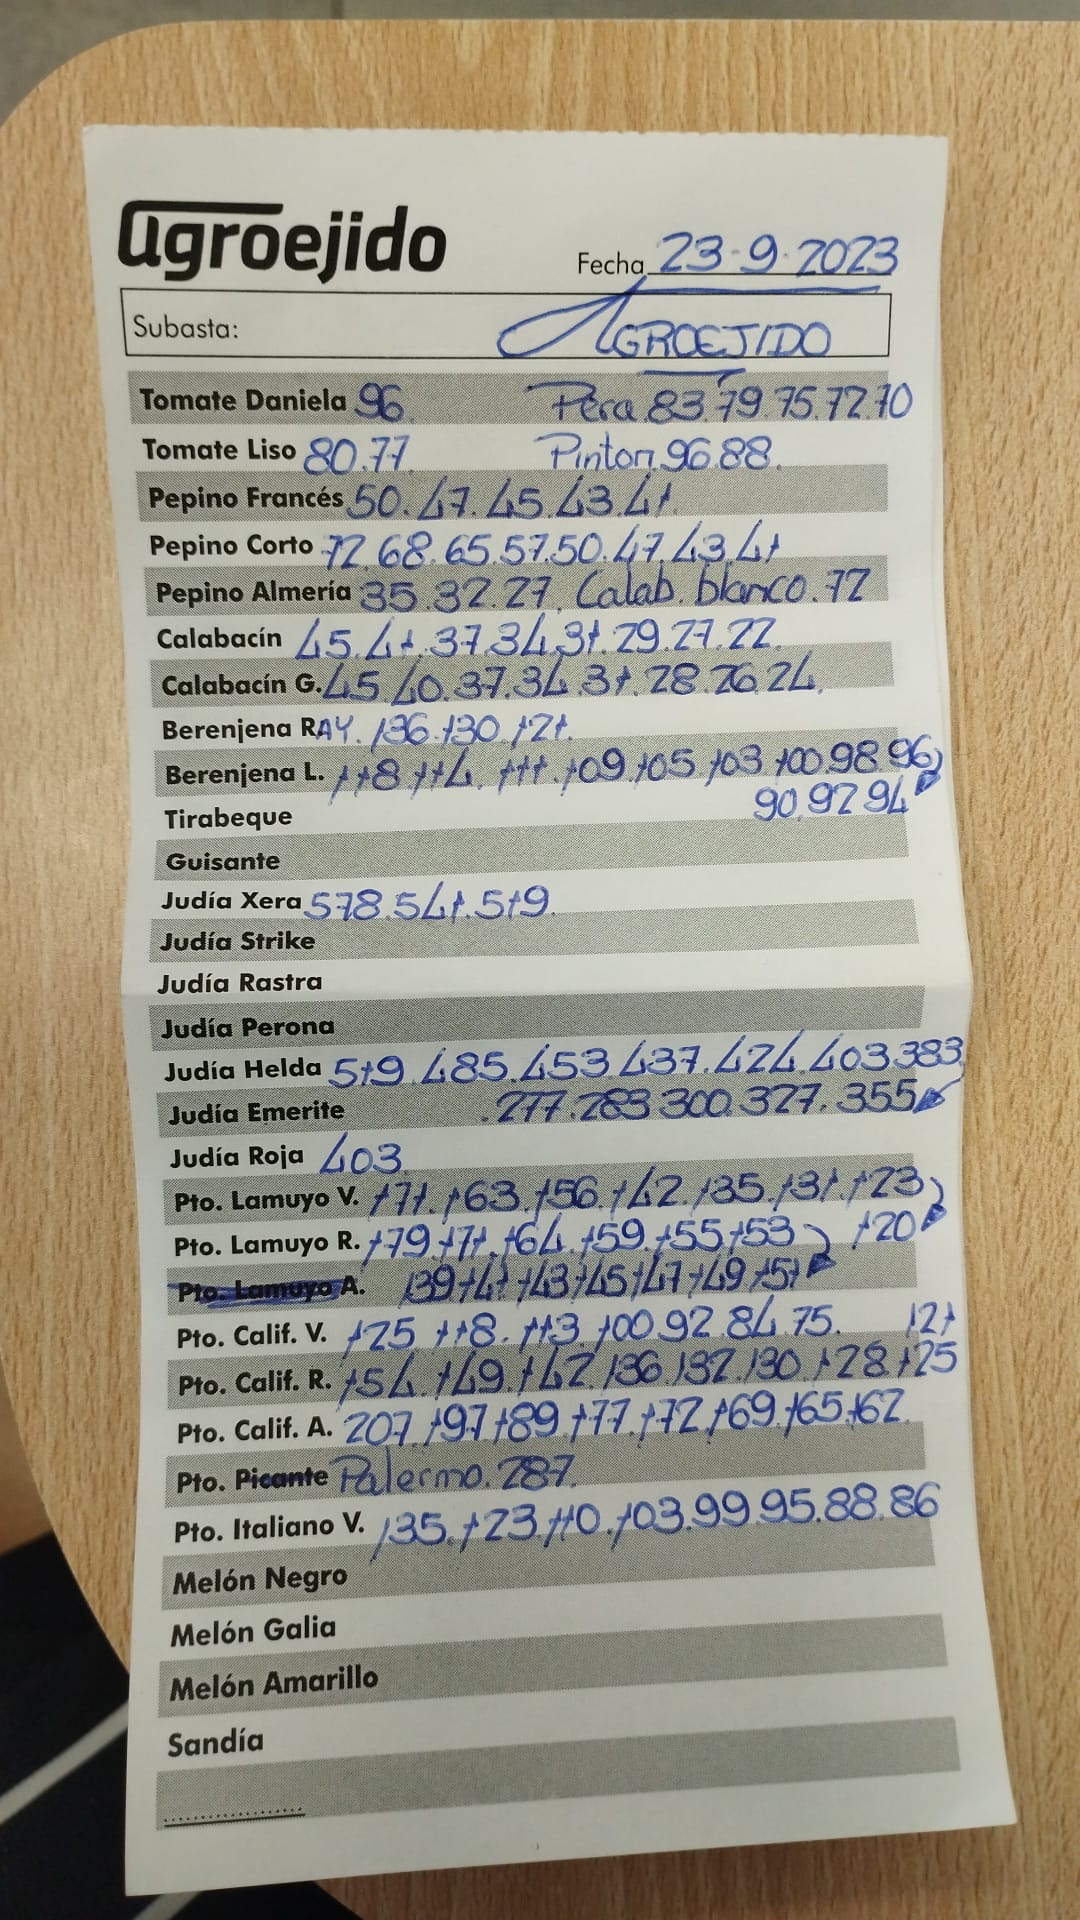 agroejido
Fecha 23-9-2023
Subasta: AGROEJIDO
Tomate Daniela 96. Pera 83.79.75.72.70
Tomate Liso 80.77. Pinton.96.88.
Pepino Francés 50.47.45.43.41.
Pepino Corto 72.68.65.57.50.47.43.41
Pepino Almería 35.32.27. Calab. blanco.72
Calabacín 45.41.37.34.31.29.27.22.
Calabacín G. 45.40.37.34.31.28.26.24.
Berenjena RAY. 136.130.121.
Berenjena L. 118.114.111.109.105.103.100.98.96
Tirabeque 90.92.94
Guisante
Judía Xera 578.541.519.
Judía Strike
Judía Rastra
Judía Perona
Judía Helda 519.485.453.437.424.403.383
Judía Emerite .277.283.300.327.355
Judía Roja 403
Pto. Lamuyo V. 171.163.156.142.135.131.123
Pto. Lamuyo R. 179.171.164.159.155.153 120
Pto. Lamuyo A. 139.141.143.145.147.149.151
Pto. Calif. V. 125.118.113.100.92.84.75. 121
Pto. Calif. R. 154.149.142.136.132.130.128.125
Pto. Calif. A. 207.197.189.177.172.169.165.162.
Pto. Picante Palermo.287.
Pto. Italiano V. 135.123.110.103.99.95.88.86
Melón Negro
Melón Galia
Melón Amarillo
Sandía